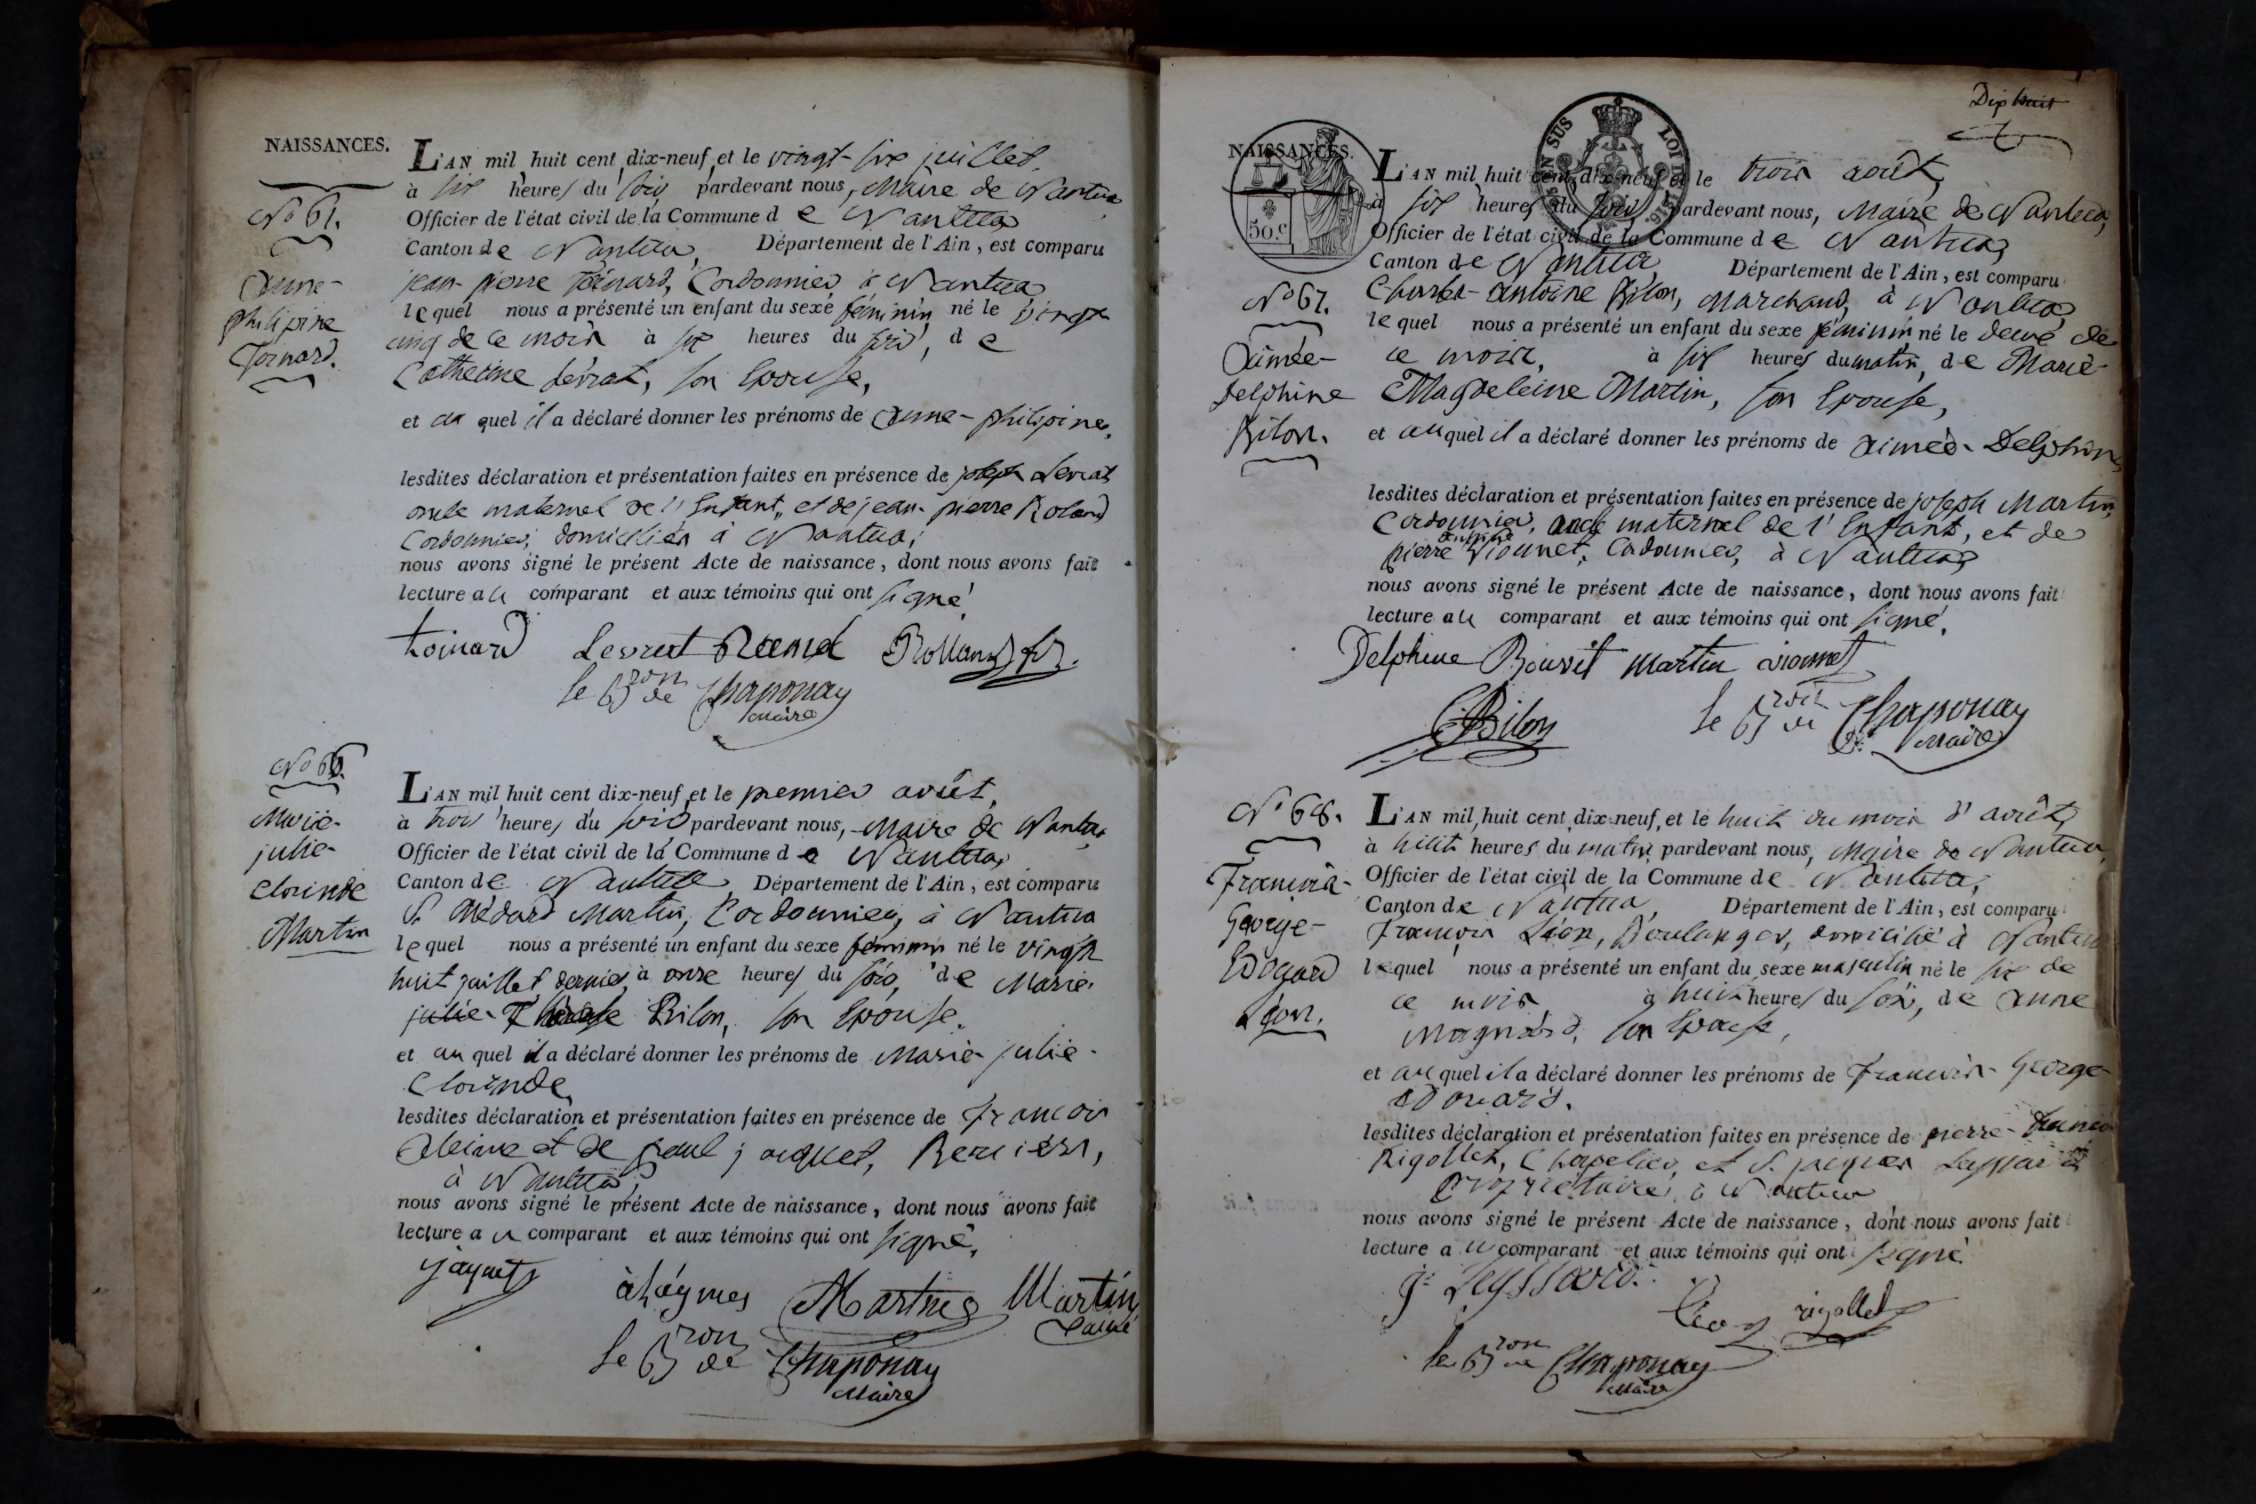 NAISSANCES.
L'AN mil huit cent dix-neuf et le vingt-six juillet,
à six heures du soir pardevant nous, Maire de Nantua
Officier de l'état civil de la Commune de Nantua
Canton de Nantua, Département de l'Ain, est comparu
jean-pierre Toinard, Cordonnier à Nantua
lequel nous a présenté un enfant du sexe féminin né le vingt
cinq de ce mois à six heures du soir, de
Catherine Levrat, son Epouse,
et au quel il a déclaré donner les prénoms de Anne-philipine,
lesdites déclaration et présentation faites en présence de joseph Levrat
oncle maternel de l'Enfant, et de jean-pierre Roland
Cordonnier, domiciliés à Nantua,
nous avons signé le présent Acte de naissance, dont nous avons fait
lecture au comparant et aux témoins qui ont signé.
Anne-
philipine
Toinard.
toinard Levrat Rolland
le Bron de Chaponay
Maire
No 66.
Marie-
julie-
Clorinde
Martin
L'AN mil huit cent dix-neuf et le premier août,
à trois heures du soir pardevant nous, Maire de Nantua
Officier de l'état civil de la Commune de Nantua,
Canton de Nantua, Département de l'Ain, est comparu
S. Médard Martin, Cordonnier, à Nantua
lequel nous a présenté un enfant du sexe féminin né le vingt
huit juillet dernier, à onze heures du soir, de Marie-
julie-Thérèse Bilon, son Epouse.
et au quel il a déclaré donner les prénoms de Marie-julie-
Clorinde
lesdites déclaration et présentation faites en présence de françois
et de paul jacquet,
à Nantua,
nous avons signé le présent Acte de naissance, dont nous avons fait
lecture au comparant et aux témoins qui ont signé.
jaquet Martin Martin
le Bron de Chaponay
Maire
Dix huit
NAISSANCES.
50.c
L'AN mil huit cent dix-neuf et le trois août,
à six heures du soir pardevant nous, Maire de Nantua,
Officier de l'état civil de la Commune de Nantua
Canton de Nantua, Département de l'Ain, est comparu
Charles-antoine Bilon, Marchand, à Nantua,
lequel nous a présenté un enfant du sexe féminin né le deux de
ce mois, à six heures du matin, de Marie-
Magdeleine Martin, son Epouse,
et au quel il a déclaré donner les prénoms de aimée-Delphine
lesdites déclaration et présentation faites en présence de joseph Martin,
Cordonnier, oncle maternel de l'Enfant, et de
pierre Vionnet, Cordonnier, à Nantua
nous avons signé le présent Acte de naissance, dont nous avons fait
lecture au comparant et aux témoins qui ont signé.
No 67.
Aimée-
Delphine
Bilon.
Delphine Bouvit Martin vionnet
Bilon
le Bron de Chaponay
Maire
No 68.
François-
George-
Edouard
Léon.
L'AN mil huit cent dix-neuf, et le huit du mois d'août,
à huit heures du matin pardevant nous, Maire de Nantua,
Officier de l'état civil de la Commune de Nantua,
Canton de Nantua, Département de l'Ain, est comparu
François Léon, Boulanger, domicilié à Nantua
lequel nous a présenté un enfant du sexe masculin né le six de
ce mois à huit heures du soir, de Anne
son Epouse,
et au quel il a déclaré donner les prénoms de François-George-
Edouard.
lesdites déclaration et présentation faites en présence de pierre-françois
Rigollet, Chapelier, et S. jacques
propriétaire, à Nantua
nous avons signé le présent Acte de naissance, dont nous avons fait
lecture au comparant et aux témoins qui ont signé
Leyssard.
Léon rigollet
le Bron de Chaponay
Maire